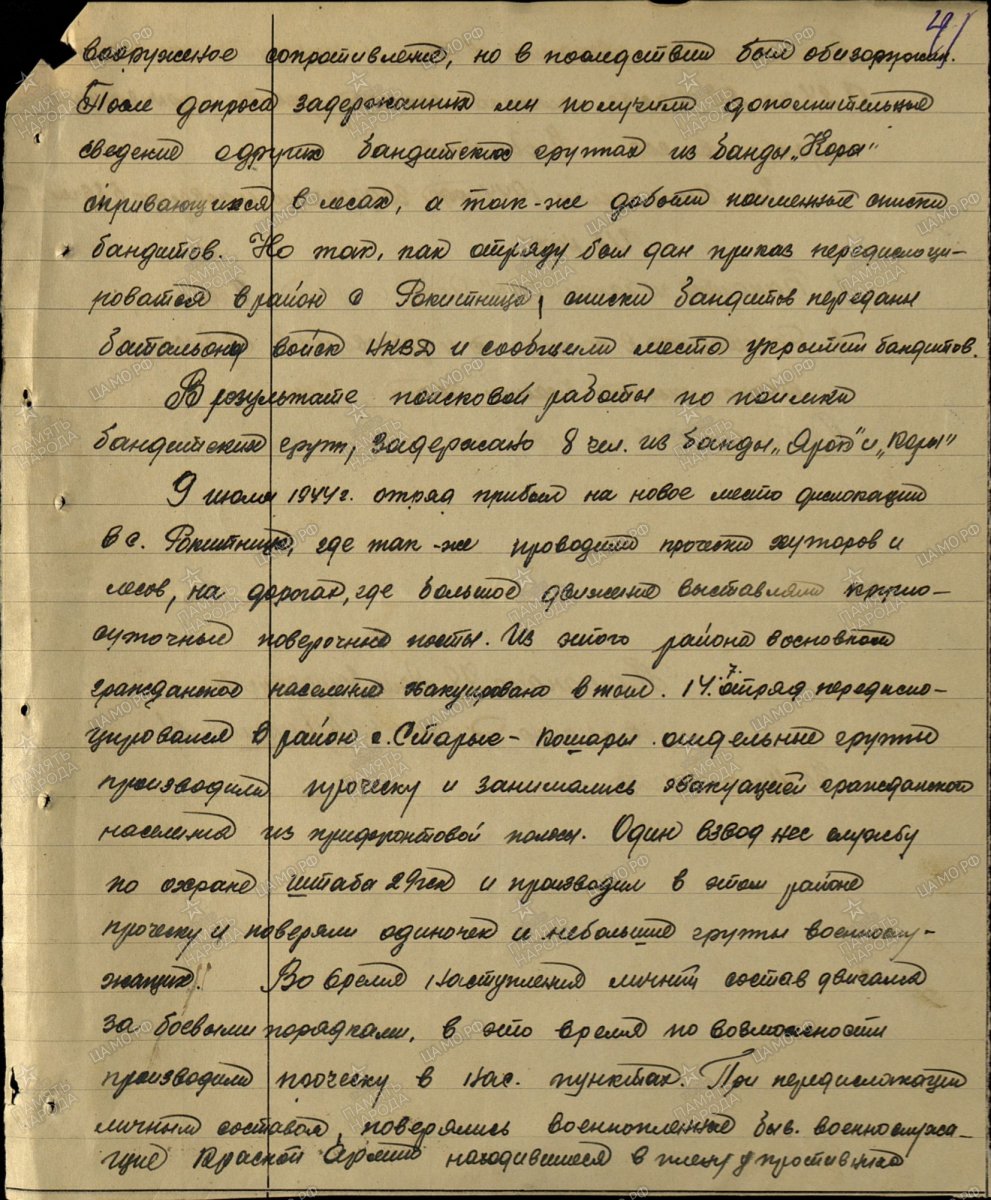 вооруженое сопротивление, но в последствии был обизаружен.
После допроса задержанных мы получили дополнительные
сведение о других бандитских групах из банды „Кора"
скривающихся в лесах, а так-же добыты поименные списки
бандитов. Но так, как отряду был дан приказ передислоци-
роватся в район с Рокитница, списки бандитов переданы
батальону войск НКВД и сообщили место укрытия бандитов.
В результате поисковой работы по поимки
бандитских груп, задержано 8 чел. из банды „Ярош" и „Коры"
9 июля 1944 г. отряд прибыл на новое место дислокации
в с. Рокитница, где так-же проводили прочески хуторов и
лесов, на дорогах, где большое движение выставляли кругло-
суточные поверочные посты. Из этого района в основном
гражданское население эвакуировано в тыл. 14.7. отряд передисло-
цировался в район с. Старые-Кошары. отдельные групы
производили проческу и занимались эвакуацией гражданского
населения из прифронтовой полосы. Один взвод нес службу
по охране штаба и производил в этом районе
проческу и поверяли одиночек и небольшие групы военнослу-
жащих. Во время наступления личный состав двигался
за боевыми порядками, в это время по возможности
производили проческу в нас. пунктах. При передислокации
личным составом, поверялись военнопленные быв. военнослужа-
щие Красной Армии находившиеся в плену у противника